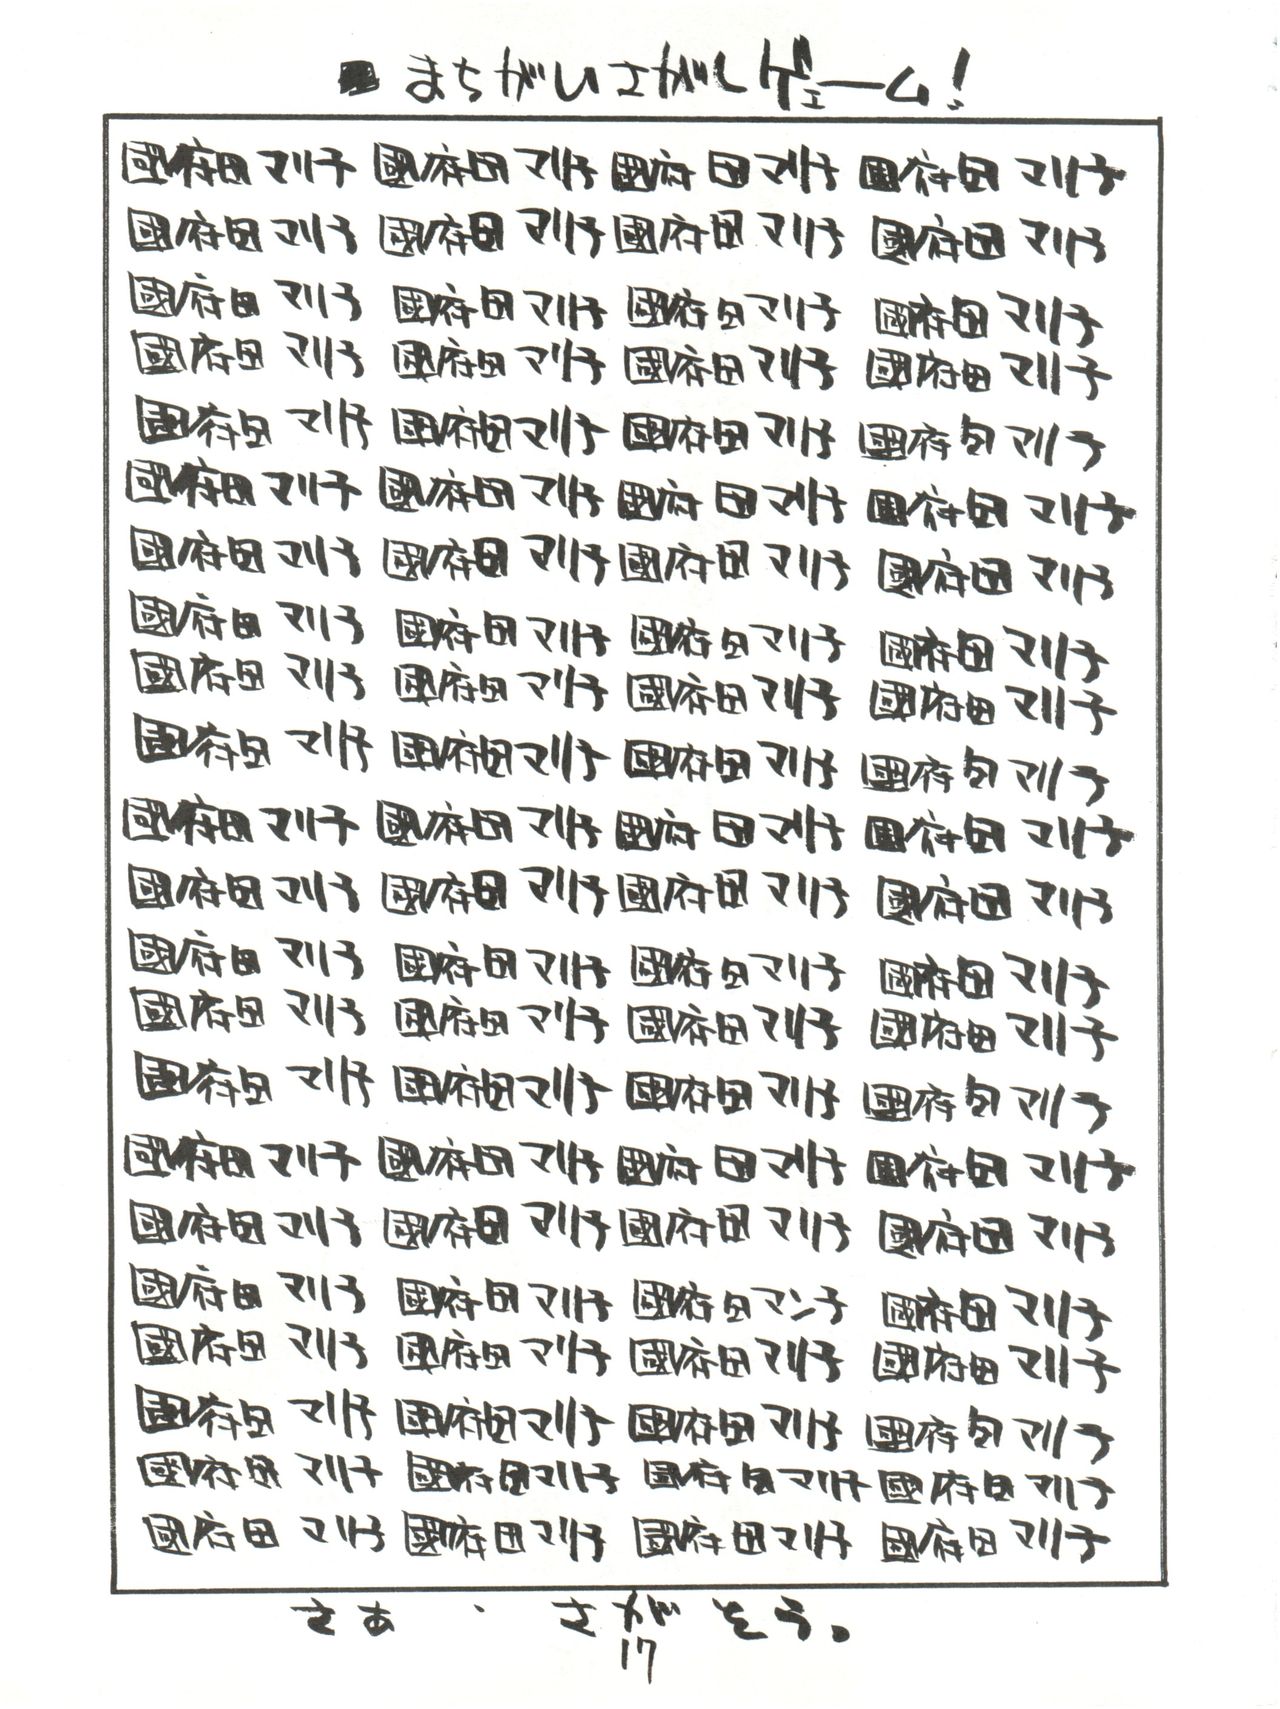 ■ まちがいさがしゲェーム!
國府田マリ子 國府田マリ子 國府田マリ子 國府田マリ子
國府田マリ子 國府田マリ子 國府田マリ子 國府田マリ子
國府田マリ子 國府田マリ子 國府田マリ子 國府田マリ子
國府田マリ子 國府田マリ子 國府田マリ子 國府田マリ子
國府田マリ子 國府田マリ子 國府田マリ子 國府田マリ子
國府田マリ子 國府田マリ子 國府田マリ子 國府田マリ子
國府田マリ子 國府田マリ子 國府田マリ子 國府田マリ子
國府田マリ子 國府田マリ子 國府田マリ子 國府田マリ子
國府田マリ子 國府田マリ子 國府田マリ子 國府田マリ子
國府田マリ子 國府田マリ子 國府田マリ子 國府田マリ子
國府田マリ子 國府田マリ子 國府田マリ子 國府田マリ子
國府田マリ子 國府田マリ子 國府田マリ子 國府田マリ子
國府田マリ子 國府田マリ子 國府田マリ子 國府田マリ子
國府田マリ子 國府田マリ子 國府田マリ子 國府田マリ子
國府田マリ子 國府田マリ子 國府田マリ子 國府田マリ子
國府田マリ子 國府田マリ子 國府田マリ子 國府田マリ子
國府田マリ子 國府田マリ子 國府田マリ子 國府田マリ子
國府田マリ子 國府田マリ子 國府田マン子 國府田マリ子
國府田マリ子 國府田マリ子 國府田マリ子 國府田マリ子
國府田マリ子 國府田マリ子 國府田マリ子 國府田マリ子
國府田マリ子 國府田マリ子 國府田マリ子 國府田マリ子
國府田マリ子 國府田マリ子 國府田マリ子 國府田マリ子
さぁ、さがそう。
17